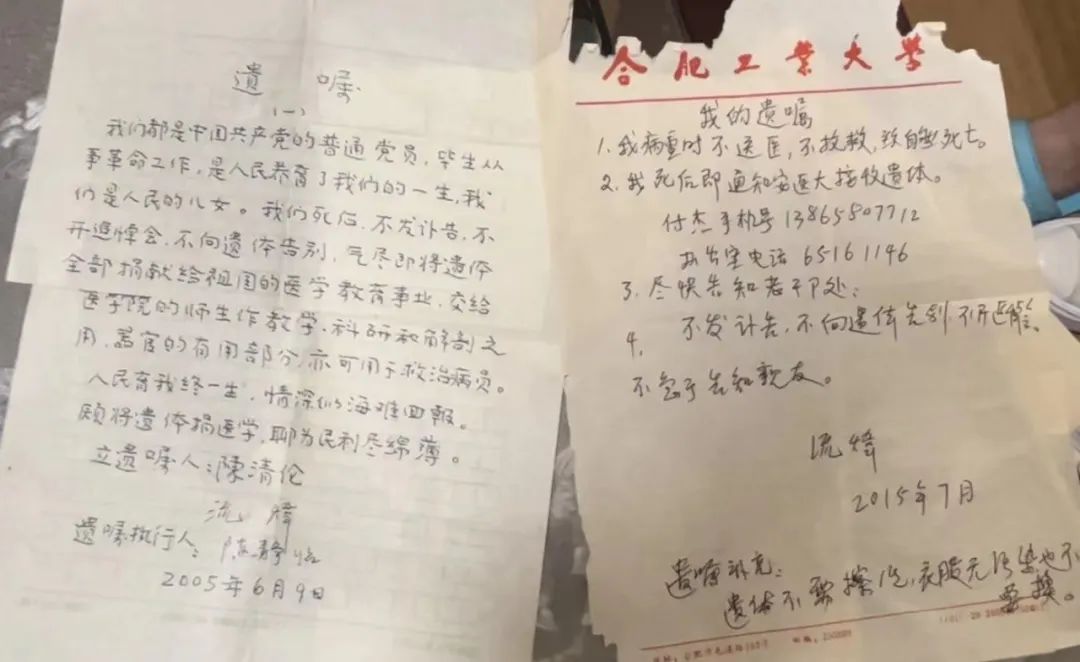 遗 嘱
(一)
我们都是中国共产党的普通党员，毕生从
事革命工作，是人民养育了我们的一生，我
们是人民的儿女。我们死后，不发讣告，不
开追悼会，不向遗体告别，气尽即将遗体
全部捐献给祖国的医学教育事业，交给
医学院的师生作教学、科研和解剖之
用，器官的有用部分，亦可用于救治病员。
人民育我终一生，情深似海难回報。
愿将遗体捐医学，聊为民利尽绵薄。
立遗嘱人：陳清伦
流 烽
遗嘱执行人：陈静
2005年6月9日
合肥工業大学
我的遗嘱
1. 我病重时不送医，不抢救，致自然死亡。
2. 我死后即通知安医大接收遗体。
付杰手机号 13865807712
办公室电话 65161146
3. 尽快告知老干处；
4. 不发讣告，不向遗体告别，不开追悼会。
不急于告知亲友。
流烽
2015年7月
遗嘱补充：
遗体不要擦洗，衣服无污染也不
要换。